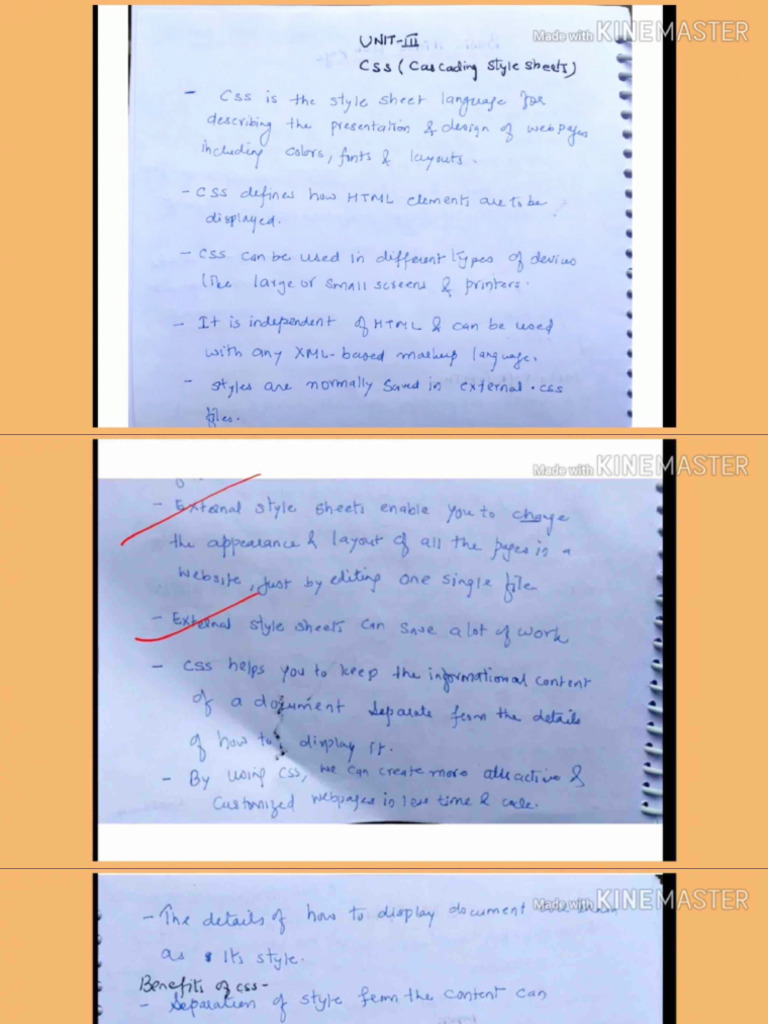 Made with KINEMASTER
UNIT-III
CSS (Cascading Style Sheets)
- CSS is the style sheet language for
describing the presentation & design of webpages
including colors, fonts & layouts.
- CSS defines how HTML elements are to be
displayed.
- CSS can be used in different types of devices
like large or small screens & printers.
- It is independent of HTML & can be used
with any XML-based markup language.
- Styles are normally saved in external .css
files.
Made with KINEMASTER
- External style sheets enable you to change
the appearance & layout of all the pages in a
website, just by editing one single file
- External style sheets can save a lot of work
- CSS helps you to keep the informational content
of a document separate from the details
of how to display it.
- By using CSS, we can create more attractive &
customized webpages in less time & code.
Made with KINEMASTER
- The details of how to display document
as its style.
Benefits of css-
- Separation of style from the content can